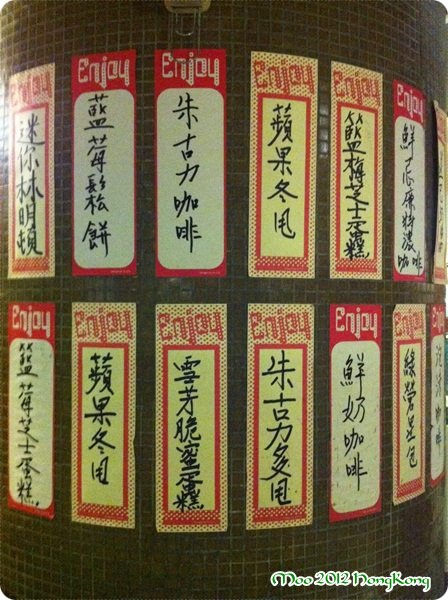 Enjoy
迷你林明頓
Enjoy
藍莓鬆餅
Enjoy
朱古力咖啡
Enjoy
蘋果冬甩
Enjoy
籃梅芝士蛋糕
Enjoy
鮮忌廉特濃咖啡
Enjoy
籃莓芝士蛋糕
Enjoy
蘋果冬甩
Enjoy
雪芳脆蜜蛋糕
Enjoy
朱古力冬甩
Enjoy
鮮奶咖啡
Enjoy
Moo 2012 HongKong